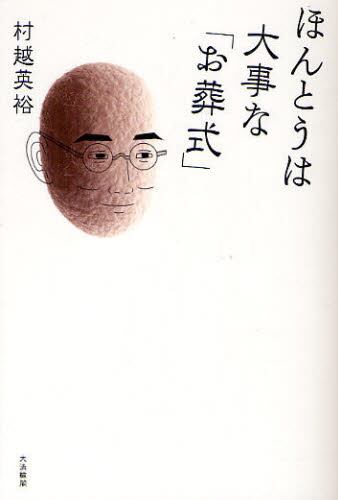 ほんとうは
大事な
「お葬式」
村越英裕
大法輪閣